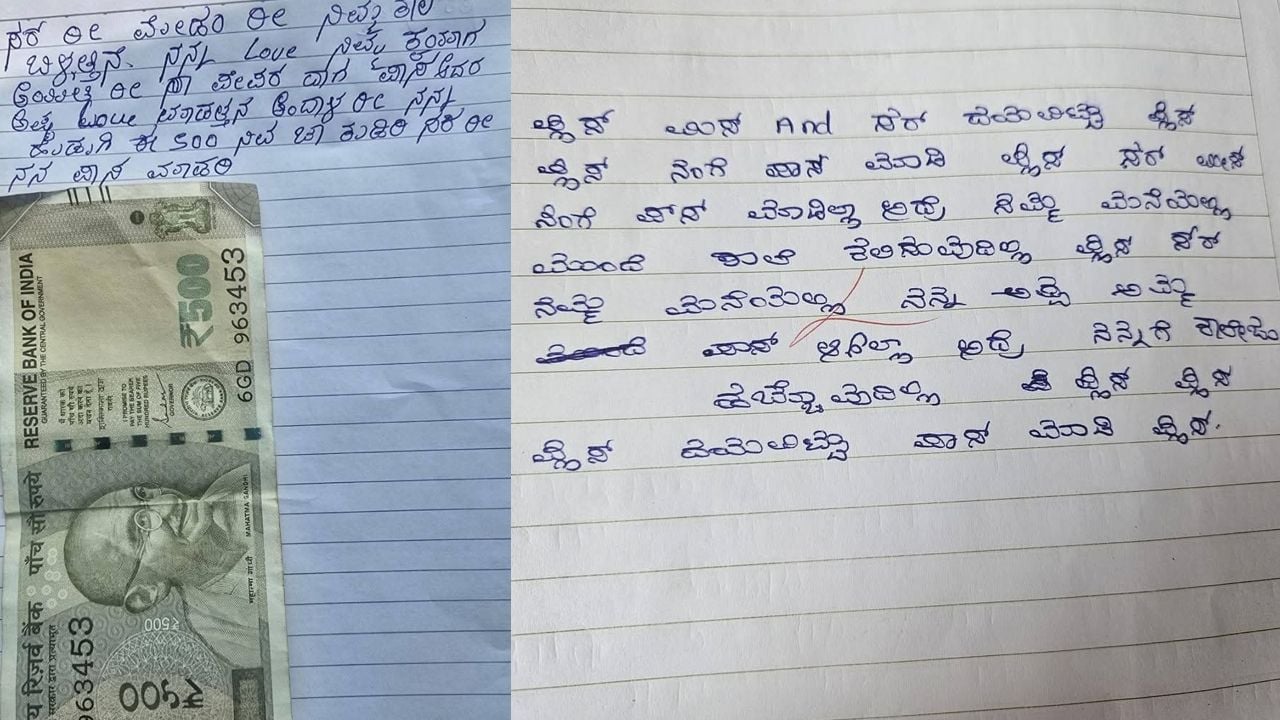 ಸರ ರೀ ಮೇಡಂ ರೀ ನಿಮ್ಮ ಕಾಲ
ಬಿಳ್ಳತ್ತಿನ. ನನ್ನ Love ನಿಮ್ಮ
ರೀ ನಾ ಪಾಸ ಆದರ
ಅಷ್ಟ Love ಮಾಡತ್ತನ ಅಂದಾಳ ರೀ ನನ್ನ
ಹುಡುಗಿ ಈ 500 ನಿವ ಚಾ ಕುಡಿರಿ ಸರ ರೀ
ನನ ಪಾಸ ಮಾಡರಿ
RESERVE BANK OF INDIA
GUARANTEED BY THE CENTRAL GOVERNMENT
₹500
6GD 963453
I PROMISE TO
PAY THE BEARER
THE SUM OF FIVE
HUNDRED RUPEES
GOVERNOR
पाँच सौ रुपये
MAHATMA GANDHI
महात्मा गांधी
य रिज़र्व बैंक
₹500
963453
ಪ್ಲಿಸ್ ಮಿಸ್ And ಸರ್ ದಯವಿಟ್ಟು ಪ್ಲಿಸ
ಪ್ಲಿಸ್ ನಂಗೆ ಪಾಸ ಮಾಡಿ ಪ್ಲಿಸ್ ಸರ್
ನಂಗೆ ಪಾಸ್ ಮಾಡಿಲ್ಲಾ ಅದ್ರೆ ನಮ್ಮ ಮನೆಯಲ್ಲಿ
ಮುಂದೆ ಶಾಲೆ ಕಲಿಸುವುದಿಲ್ಲ ಪ್ಲಿಸ ಸರ
ನಮ್ಮ ಮನೆಯಲ್ಲಿ ನನ್ನ ಅಪ್ಪ ಅಮ್ಮ
ಪಾಸ್ ಆಗಿಲ್ಲಾ ಅದ್ರೆ ನನ್ನಗೆ ಕಾಲೇಜು
ಹಚ್ಚುವುದಿಲ್ಲ ಪ್ಲಿಸ ಪ್ಲಿಸ
ಪ್ಲಿಸ್ ದಯವಿಟ್ಟು ಪಾಸ್ ಮಾಡಿ ಪ್ಲಿಸ್.